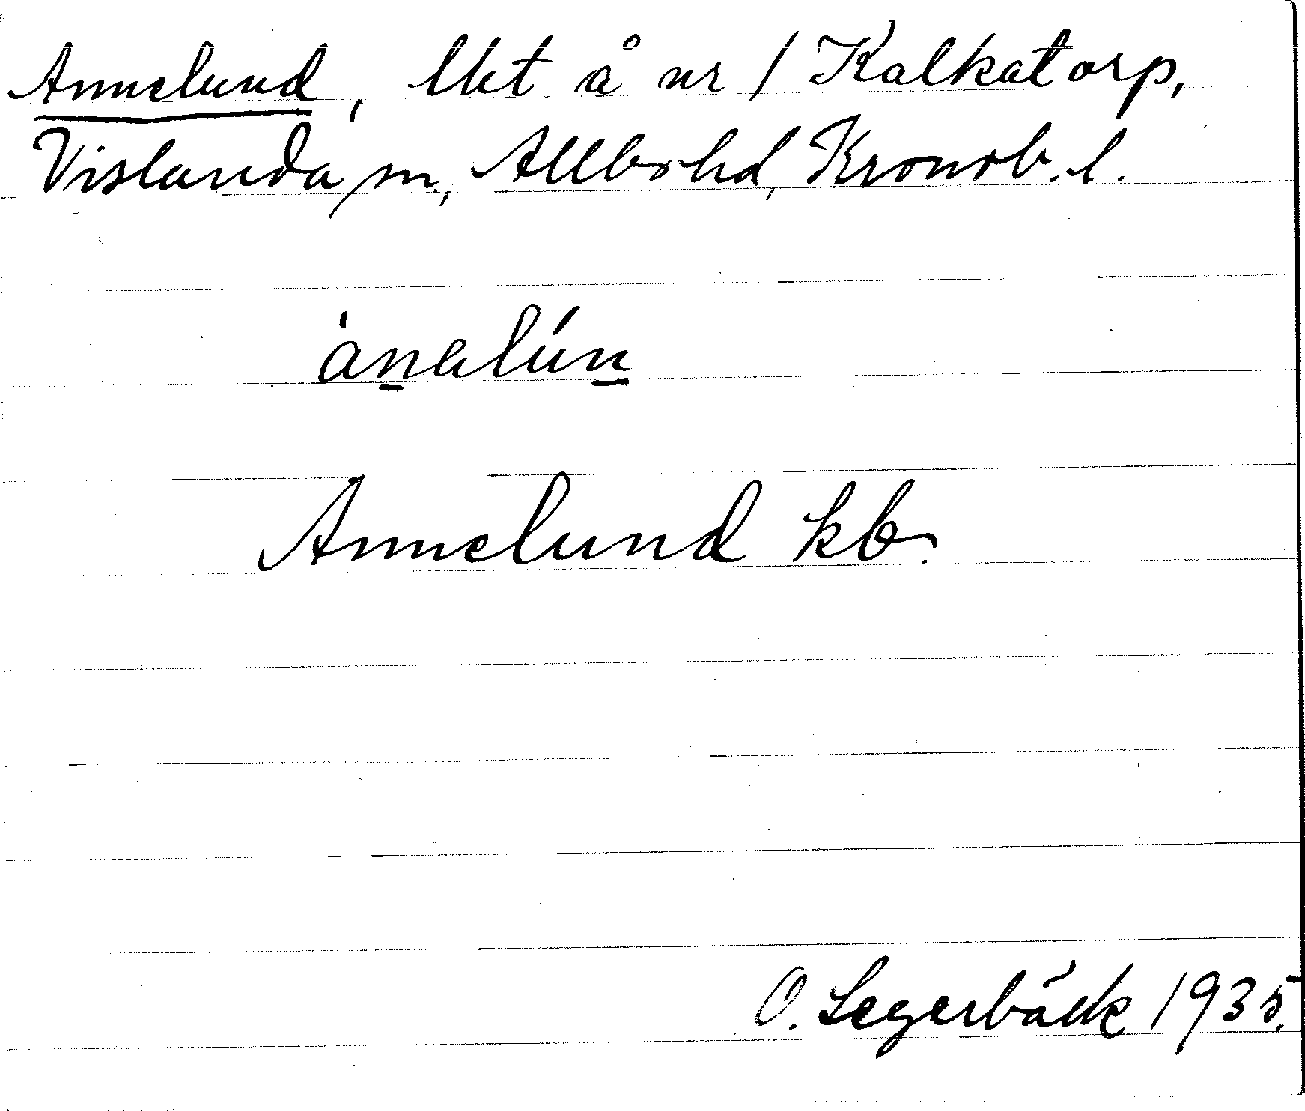 Annelund, lht å nr 1 Kalkatorp,
Vislanda sn, Allbo hd, Kronob. l.
ànalún
Annelund kb.
O. Segerbäck 1935.